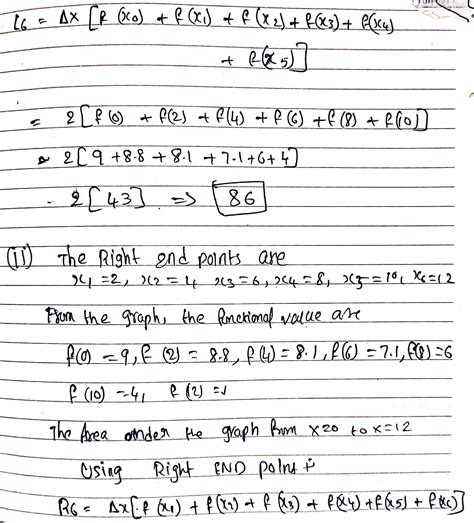 L6 = Δx [f(x0) + f(x1) + f(x2) + f(x3) + f(x4)
+ f(x5)]
= 2[f(0) + f(2) + f(4) + f(6) + f(8) + f(10)]
= 2[9 + 8.8 + 8.1 + 7.1 + 6 + 4]
- 2[43] => 86
(ii) The Right end points are
x1 = 2, x2 = 4 x3 = 6, x4 = 8, x5 = 10, x6 = 12
From the graph, the functional value are
f(0) = 9, f(2) = 8.8, f(4) = 8.1, f(6) = 7.1, f(8) = 6
f(10) = 4, f(2) = 1
The Area under the graph from x=0 to x=12
Using Right END point
R6 = Δx[f(x1) + f(x2) + f(x3) + f(x4) + f(x5) + f(x6)]